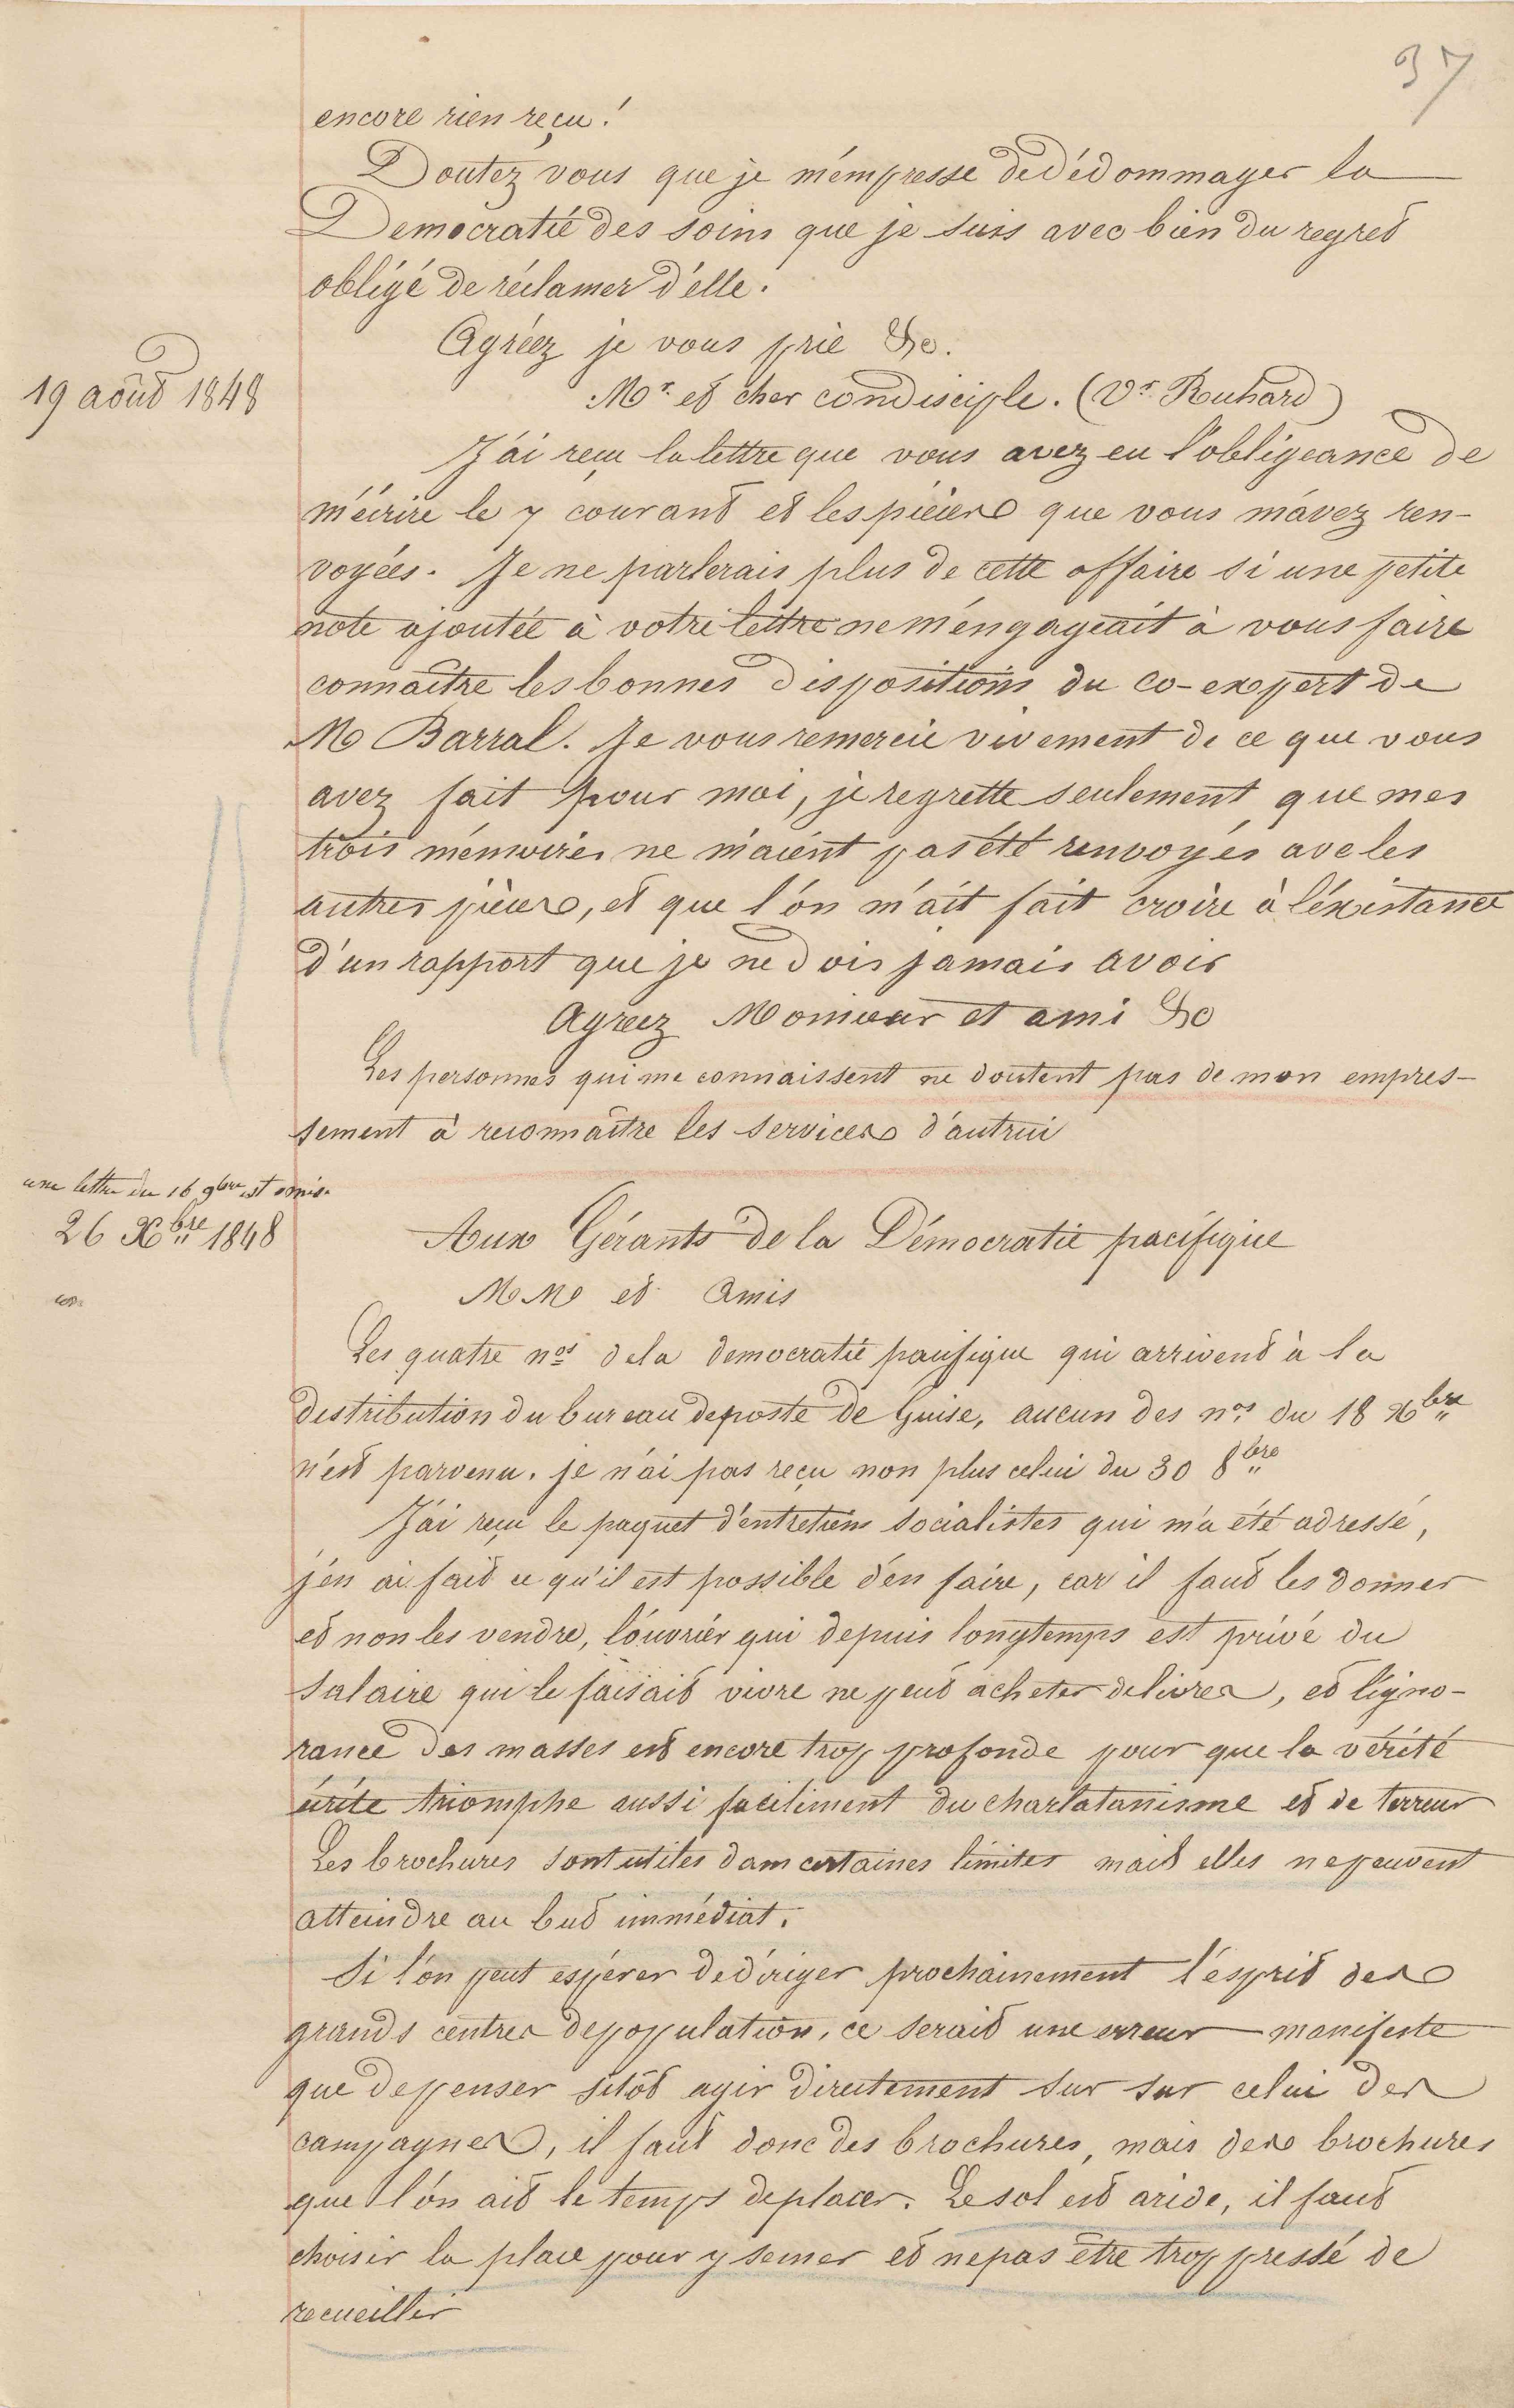 37
encore rien reçu!
Doutez vous que je m'empresse de dédommager la
Democratie des soins que je suis avec bien du regret
obligé de réclamer d'elle.
Agréez je vous prie &c.
19 août 1848
Mr. et cher condisciple. (Vr. Ruhard)
J'ai reçu la lettre que vous avez eu l'obligeance de
m'écrire le 7 courant et les pièces que vous m'avez ren-
voyées. Je ne parlerais plus de cette affaire si une petite
note ajoutée à votre lettre ne m'engageait à vous faire
connaître les bonnes dispositions du co-expert de
M Barral. Je vous remercie vivement de ce que vous
avez fait pour moi, je regrette seulement que mes
trois mémoires ne m'aient pas été renvoyés ave les
autres pièces, et que l'on m'ait fait croire à l'existance
d'un rapport que je ne dois jamais avoir
Agréez Monsieur et ami &c
Les personnes qui me connaissent ne doutent pas de mon empres-
sement à reconnaître les services d'autrui
une lettre du 16 9bre est omise
26 Xbre 1848
Aux Gérants de la Démocratie pacifique
MM et Amis
Les quatre nos de la democratie pacifique qui arrivent à la
distribution du bureau de poste de Guise, aucun des nos du 18 Xbre
n'est parvenu. je n'ai pas reçu non plus celui du 30 8bre
J'ai reçu le paquet d'entretiens socialistes qui m'a été adressé,
j'en ai fait ce qu'il est possible d'en faire, car il faut les donner
et non les vendre, l'ouvrier qui depuis longtemps est privé du
salaire qui le faisait vivre ne peut acheter de livres, et l'igno-
rance des masses est encore trop profonde pour que la vérité
écrite triomphe aussi facilement du charlatanisme et de terreur
Les brochures sont utiles dans certaines limites mais elles ne peuvent
atteindre au but immédiat.
Si l'on peut espérer de diriger prochainement l'esprit des
grands centres de population, ce serait une erreur manifeste
que de penser sitôt agir directement sur sur celui des
campagnes, il faut donc des brochures, mais des brochures
que l'on ait le temps de placer. Le sol est aride, il faut
choisir la place pour y semer et ne pas être trop pressé de
recueillir